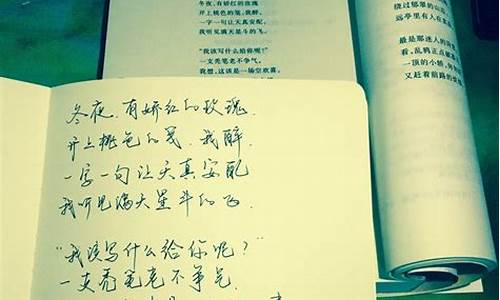 冬夜，有娇红的玫瑰
开上桃色的笺，我醉，
一字一句让天真安配，
我听见满天星斗的飞。
“我该写什么给你呢？”
一支秃笔老不争气。
我想，这该是一场空欢喜。
绕过郁翠的山
远亭里有人在
最是那迷人的
看，乱鸦正点破
一顶的小轿，
又赶着前路的
冬夜，有娇红的玫瑰，
开上桃色的笺，我醉，
一字一句让天真安配
我听见满天星斗的飞。
“我该写什么给你呢？”
一支秃笔老不争气，